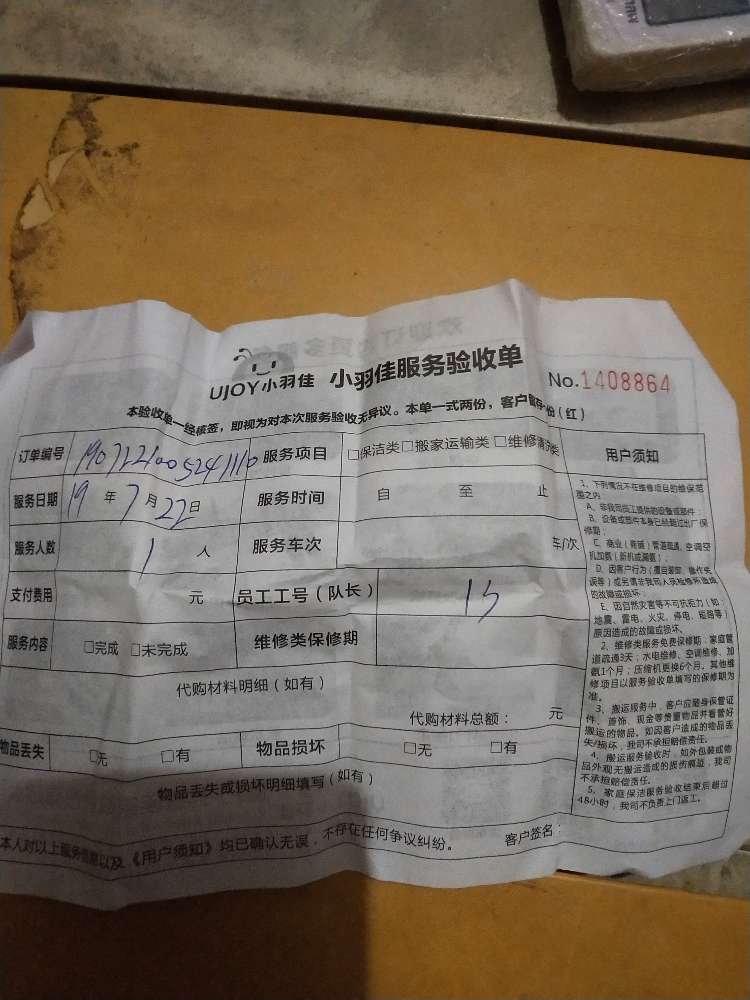 UJOY小羽佳 小羽佳服务验收单 No.1408864
本验收单一经核签，即视为对本次服务验收无异议。本单一式两份，客户留存一份(红)
订单编号 服务项目 □保洁类□搬家运输类□维修清洗类 用户须知
服务日期 19年7月22日 服务时间 自 至 止
服务人数 1人 服务车次 车/次
支付费用 元 员工工号（队长）
服务内容 □完成 □未完成 维修类保修期
代购材料明细（如有）
代购材料总额： 元
物品丢失 □无 □有 物品损坏 □无 □有
物品丢失或损坏明细填写（如有）
本人对以上服务信息以及《用户须知》均已确认无误，不存在任何争议纠纷。 客户签名：
1、下列情况不在维修项目的维保范
围之内
A、非我司员工提供的设备或部件；
B、设备或部件本身已经超过出厂保
修期；
C、商业（商铺）管道疏通、空调空
机加氨（新机或漏氨）；
D、因客户行为（擅自装卸、操作失
误等）或另请非我司人员检修所造成
的故障或损坏；
E、因自然灾害等不可抗拒力（如：
地震、雷电、火灾、停电、短路等）
原因造成的故障或损坏。
2、维修类服务免费保修期：家庭管
道疏通3天；水电维修、空调维修、加
氨1个月；压缩机更换6个月，其他维
修项目以服务验收单填写的保修期为
准。
3、搬运服务中，客户应随身保管证
件、首饰、现金等贵重物品并看管好
搬运的物品。如因客户造成的物品丢
失/损坏，我司不承担赔偿责任。
4、搬运服务验收时，如外包装或物
品外观无搬运造成的损伤痕迹，我司
不承担赔偿责任。
5、家庭保洁服务验收结束后超过
48小时，我司不负责上门返工。